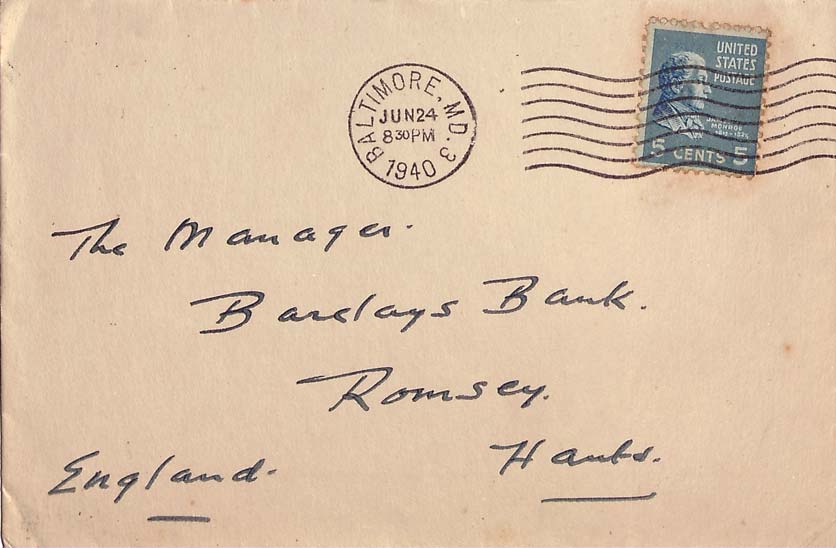 BALTIMORE, MD. 3
JUN24
8 30PM
1940
UNITED
STATES
POSTAGE
JAMES
MONROE
5 CENTS 5
The Manager.
Barclays Bank.
Romsey.
Hants.
England.